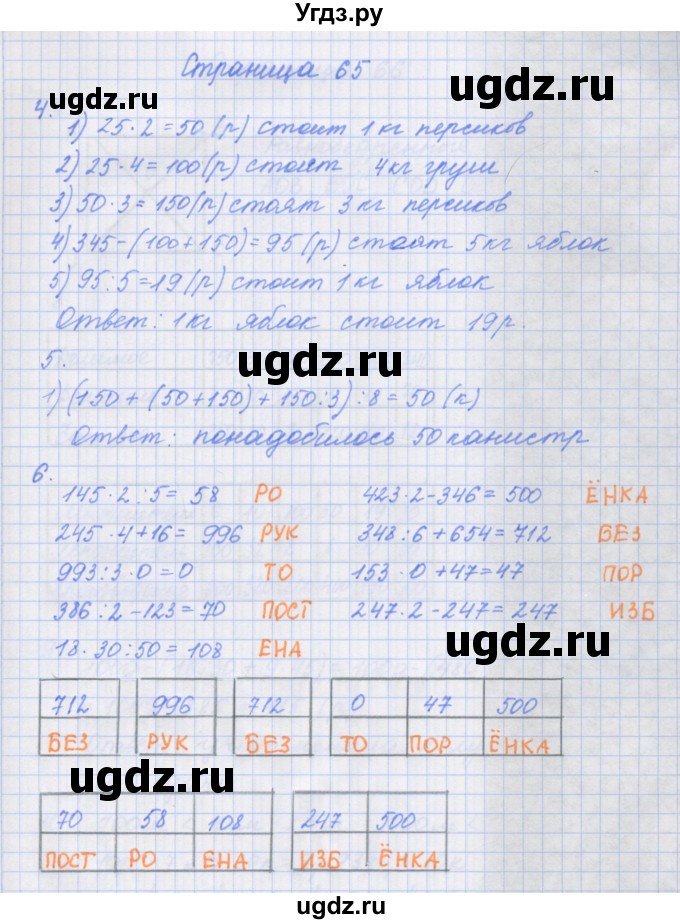 Угдз.ру
Страница 65
ugdz.ru ugdz.ru
4.
1) 25·2=50 (р) стоит 1 кг персиков
2) 25·4=100(р) стоит 4кг груш
3) 50·3=150(р) стоят 3 кг персиков
ugdz.ru ugdz.ru
4) 345-(100+150)=95 (р) стоят 5кг яблок
5) 95:5=19 (р) стоит 1 кг яблок
Ответ: 1кг яблок стоит 19р.
ugdz.ru
5.
1) (150+(50+150)+150:3):8=50 (к)
Ответ: понадобилось 50 канистр
ugdz.ru ugdz.ru
6.
145·2:5=58 РО 423·2-346=500 ЁНКА
245·4+16=996 РУК 348:6+654=712 БЕЗ
ugdz.ru
993:3·0=0 ТО 153·0+47=47 ПОР
386:2-123=70 ПОСТ 247·2-247=247 ИЗБ
18·30:50=108 ЕНА
ugdz.ru ugdz.ru
712 996 712 0 47 500
БЕЗ РУК БЕЗ ТО ПОР ЁНКА
ugdz.ru
70 58 108 247 500
ПОСТ РО ЕНА ИЗБ ЁНКА
ugdz.ru